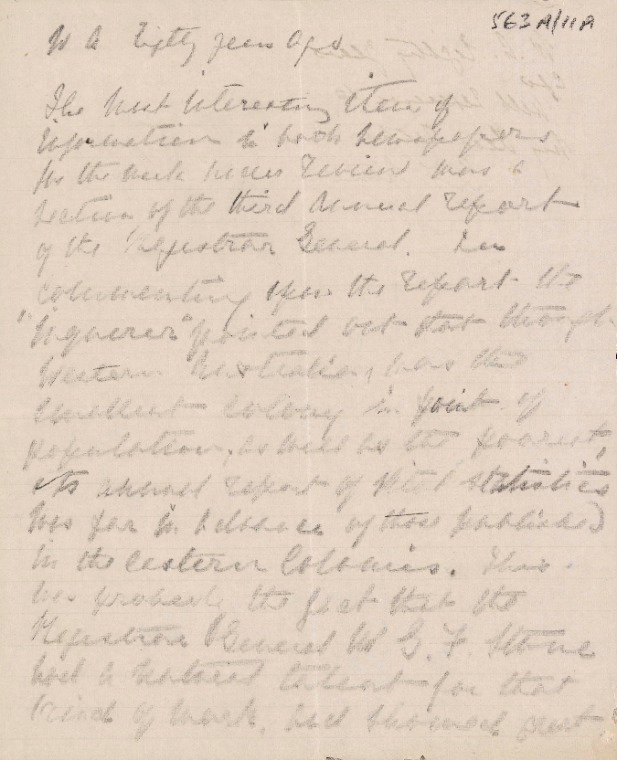 563A/11A
W A Eighty years Ago
The most interesting item of
information in both newspapers
for the week under review was a
section of the third Annual report
of the Registrar General. In
commenting upon the report the
"Inquirer" pointed out that though
Western Australia, was the
smallest Colony in point of
population, as well as the poorest,
its annual report of vital statistics
was far in advance of those published
in the eastern Colonies. This
was probably the fact that the
Registrar General Mr G. F. Stone
had a natural talent for that
kind of work, and showed great